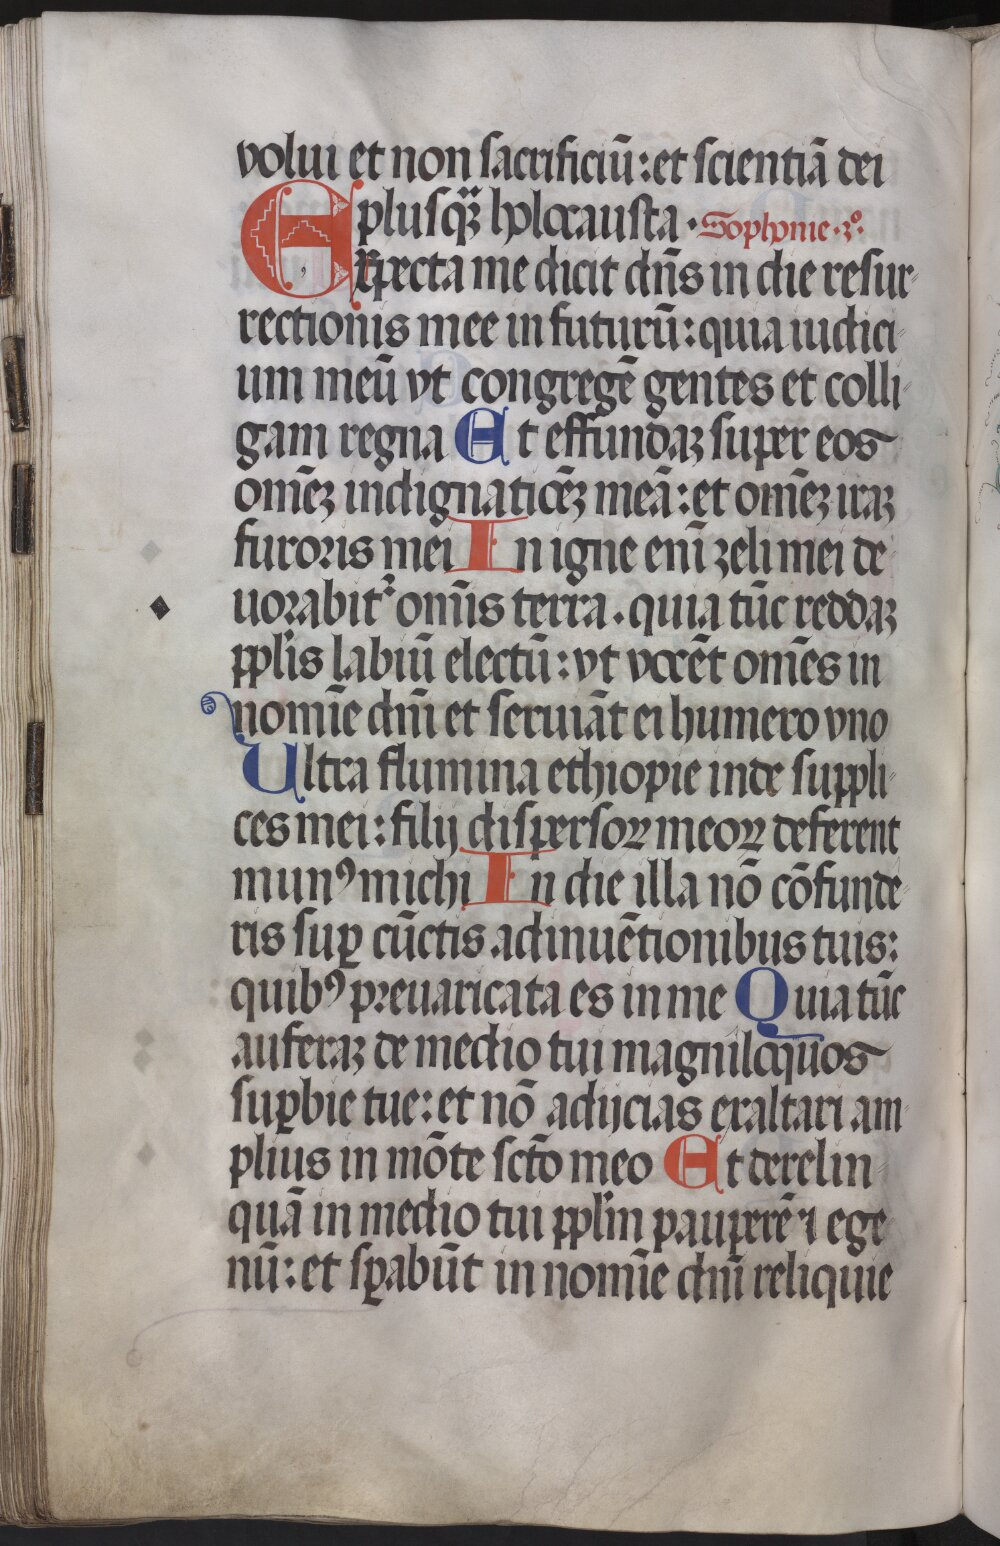 volui et non sacrificiū: et scientiā dei
plusqᷓꝫ holocausta · Sophonie · 3º ·
Exp̄ecta me dicit dn̄s in die resur-
rectionis mee in futurū: quia iudici-
um meū vt congregē gentes et colli-
gam regna Et effundaꝫ super eos
om̄eꝫ indignatiōeꝫ meā: et om̄eꝫ iraꝫ
furoris mei In igne enī zeli mei de
uorabit᷑ om̄is terra. quia tūc reddaꝫ
pplīs labiū electū: vt vocēt om̄es in
nomīe dn̄i et seruiāt ei humero vno
Ultra flumina ethiopie inde suppli-
ces mei: filij dispersoꝝ meoꝝ deferent
munꝰ michi In die illa nō cōfunde-
ris suꝑ cūctis adinuētionibus tuis:
quibꝰ preuaricata es in me Quia tūc
auferaꝫ de medio tui magniloquos
suꝑbie tue: et nō adijcias exaltari am-
plius in mōte sctō meo Et derelin
quā in medio tui pplīm pauperē ⁊ ege-
nū: et sꝑabūt in nomīe dn̄i reliquie